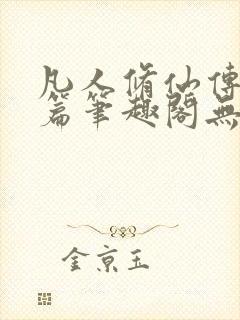 凡人脩仙傳
篇筆趣閣無
金京玉